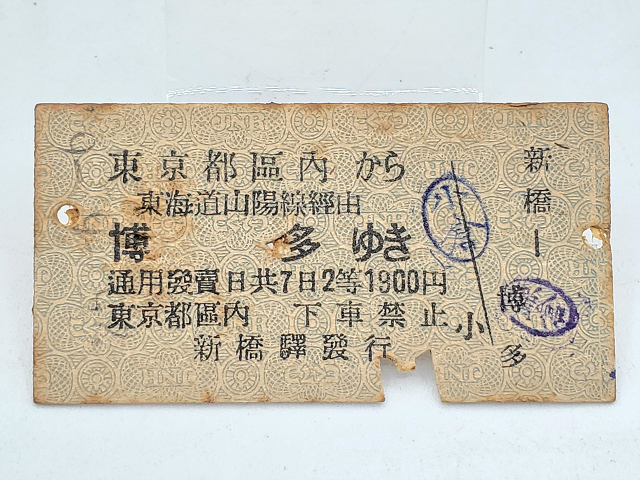 東京都區內から
東海道山陽線經由
博多ゆき
通用發賣日共7日2等1900円
東京都區內 下車禁止
新橋驛發行
新橋―博多
小